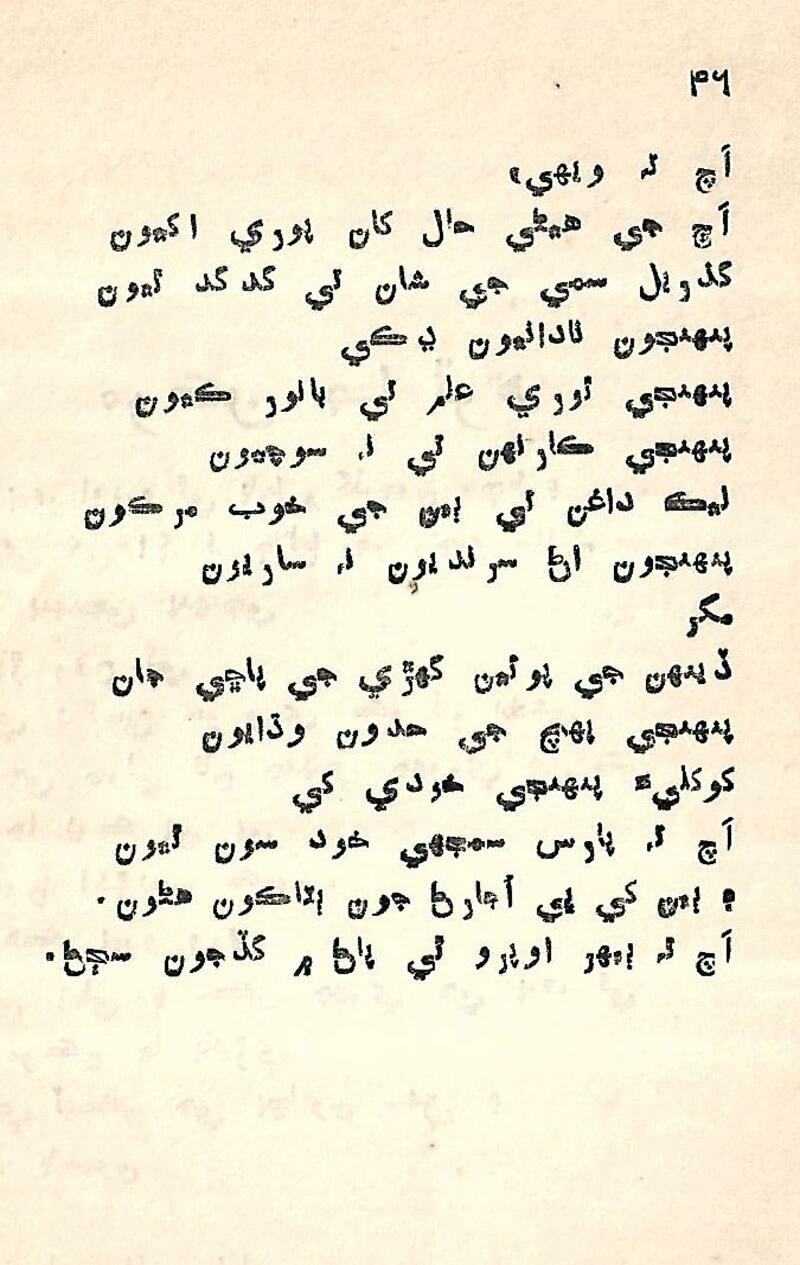 ۴٦
اَچ تہ ويهي،
اَچ جي هيڻي حال کان ٻوري اکيون
گذريل سمي جي شان تي گدگد ٿيون
پنهنجون نادانيون ڍڪي
پنهنجي ٿوري علم تي ڀانور ڪيون
پنهنجي ڪارنهن تي نہ سوچيون
ليڪ داغن تي ٻين جي خوب مرڪون
پنهنجون اڻ سرنديون نہ ساريون
مگر
ڏينهن جي پوئين گهڙي جي پاڇي جان
پنهنجي پهچ جي حدون وڌايون
کوکلي پنهنجي خودي کي
اَچ تہ پارس سمجهي خود سون ٿيون
۽ ٻين کي ئي اُڃارڻ جون ٻٽاڪون هڻون.
اَچ تہ ٻيهر اوپرو ٿي پاڻ ۾ گڏجون سڄڻ.